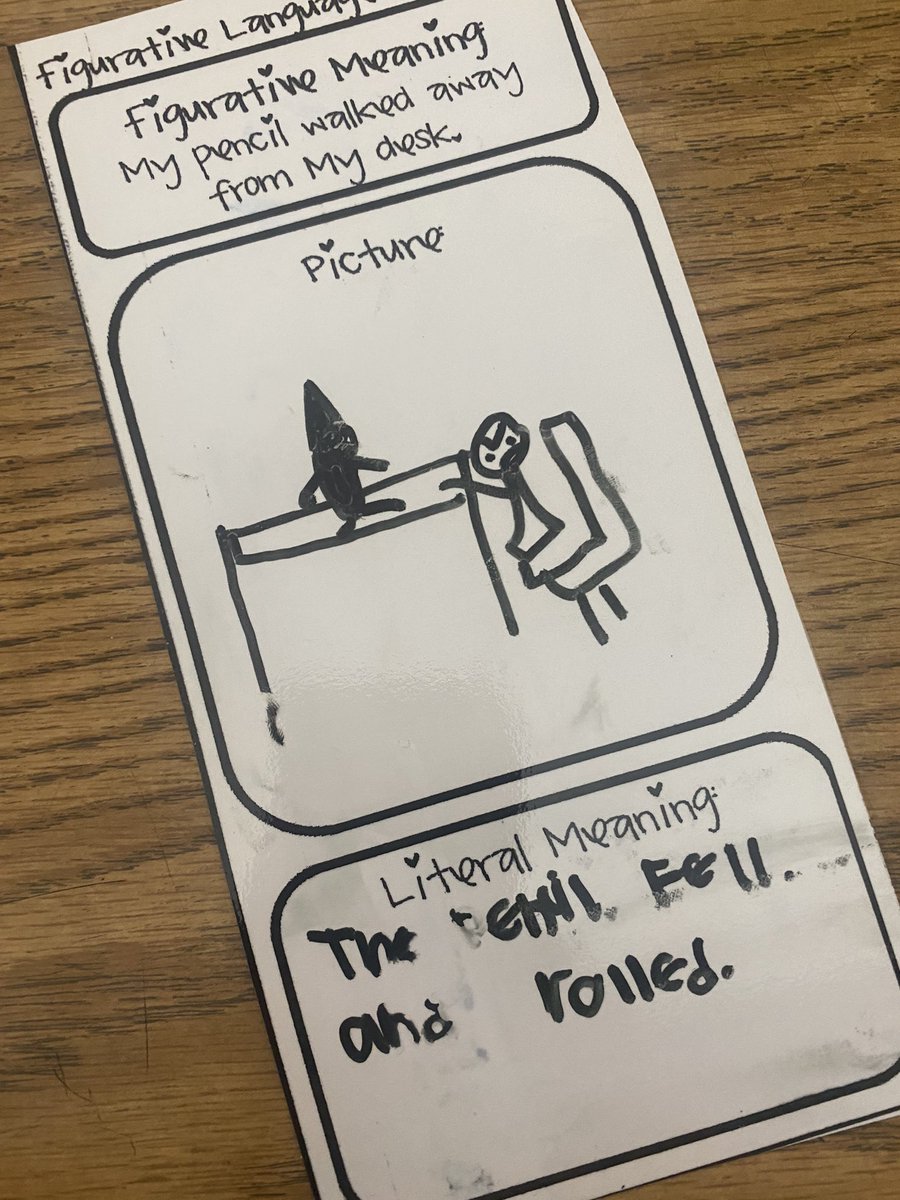 Figurative Language
Figurative Meaning:
My pencil walked away
from My desk.
Picture:
Literal Meaning:
The Fell.
and rolled.